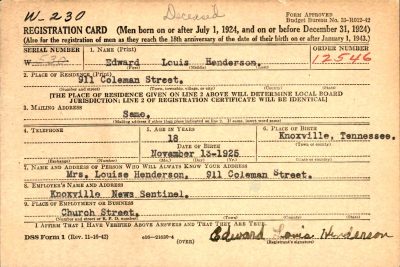 W-230
Deceased
FORM APPROVED
Budget Bureau No. 33-R012-42
REGISTRATION CARD (Men born on or after July 1, 1924, and on or before December 31, 1924)
(Also for the registration of men as they reach the 18th anniversary of the date of their birth on or after January 1, 1943.)
SERIAL NUMBER 1. NAME (Print) ORDER NUMBER
W Edward Louis Henderson. 12546
(First) (Middle) (Last)
2. PLACE OF RESIDENCE (Print)
911 Coleman Street.
(Number and street) (Town, township, village, or city) (County) (State)
[THE PLACE OF RESIDENCE GIVEN ON LINE 2 ABOVE WILL DETERMINE LOCAL BOARD
JURISDICTION; LINE 2 OF REGISTRATION CERTIFICATE WILL BE IDENTICAL]
3. MAILING ADDRESS
Same.
(Mailing address if other than place indicated on line 2. If same, insert word same)
4. TELEPHONE 5. AGE IN YEARS 6. PLACE OF BIRTH
18 Knoxville, Tennessee.
DATE OF BIRTH (Town or county)
November 13-1925
(Exchange) (Number) (Mo.) (Day) (Yr.) (State or country)
7. NAME AND ADDRESS OF PERSON WHO WILL ALWAYS KNOW YOUR ADDRESS
Mrs. Louise Henderson, 911 Coleman Street.
8. EMPLOYER'S NAME AND ADDRESS
Knoxville News Sentinel.
9. PLACE OF EMPLOYMENT OR BUSINESS
Church Street.
(Number and street or R. F. D. number) (Town) (County) (State)
I AFFIRM THAT I HAVE VERIFIED ABOVE ANSWERS AND THAT THEY ARE TRUE.
DSS Form 1 (Rev. 11-16-42) (OVER) Edward Louis Henderson
(Registrant's signature)